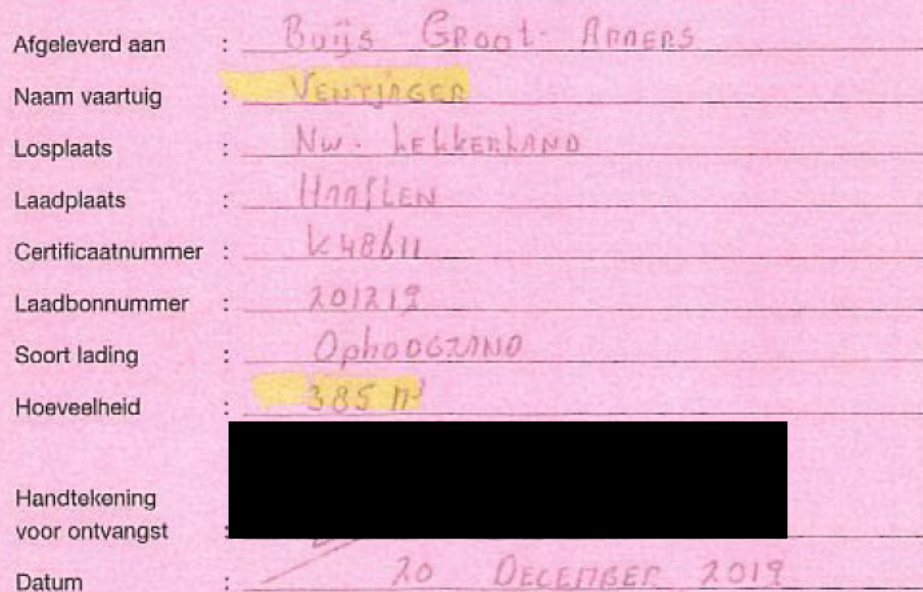 Afgeleverd aan : Buijs Groot-Ammers
Naam vaartuig : Ventjager
Losplaats : Nw. Lekkerland
Laadplaats : Haaften
Certificaatnummer : K48611
Laadbonnummer : 201219
Soort lading : Ophoogzand
Hoeveelheid : 385 m³
Handtekening
voor ontvangst :
Datum : 20 December 2019